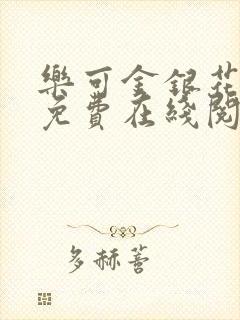 樂可金銀花
免費在綫閱
多赫蓍